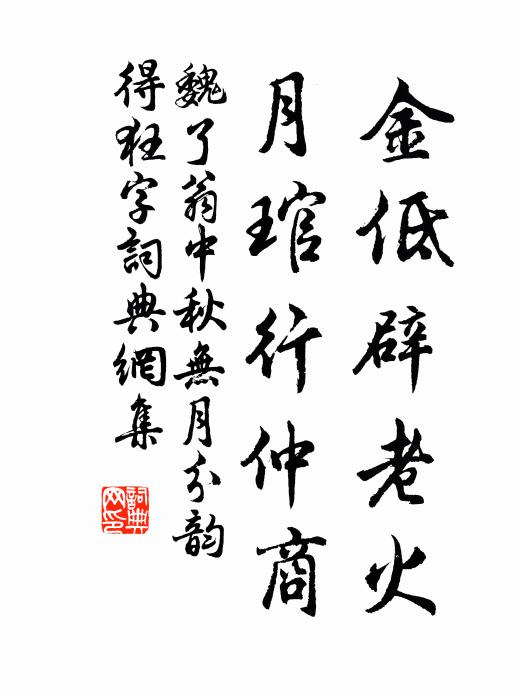 金低辟老火
月琯行仲商
魏了翁中秋無月分韵
得狂字詞典網集
詞典网印